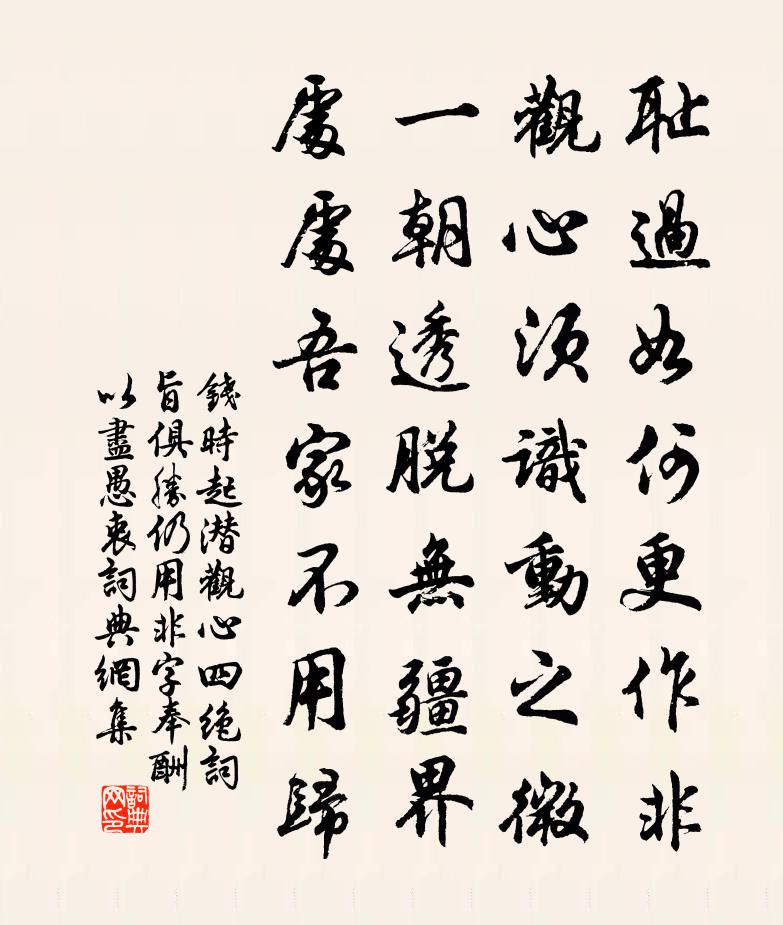 耻過如何更作非
觀心須識動之微
一朝透脱無疆界
處處吾家不用歸
錢時起潜觀心四绝詞
旨俱勝仍用非字奉酬
以盡愚衷詞典網集
詞典网印